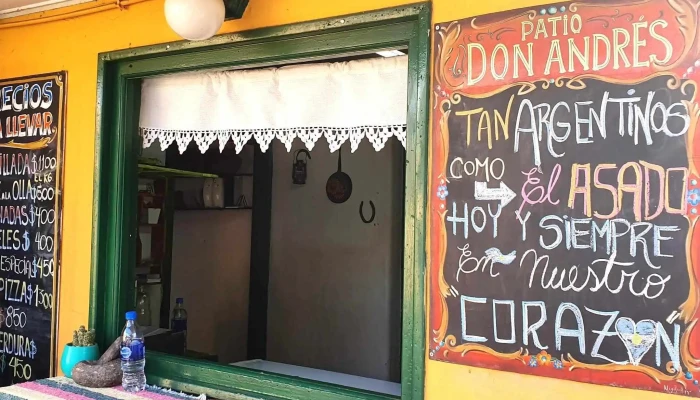 ECIOS
LLEVAR
LLADA $1100
EL KG
A LA OLLA $800
NADAS $400
ELES $ 400
ESPECIAL $450
PIZZA $1500
$ 850
ERDURA $
$ 450
PATIO
DON ANDRÉS
TAN ARGENTINOS
COMO El ASADO
HOY Y SIEMPRE
En Nuestro
CORAZON